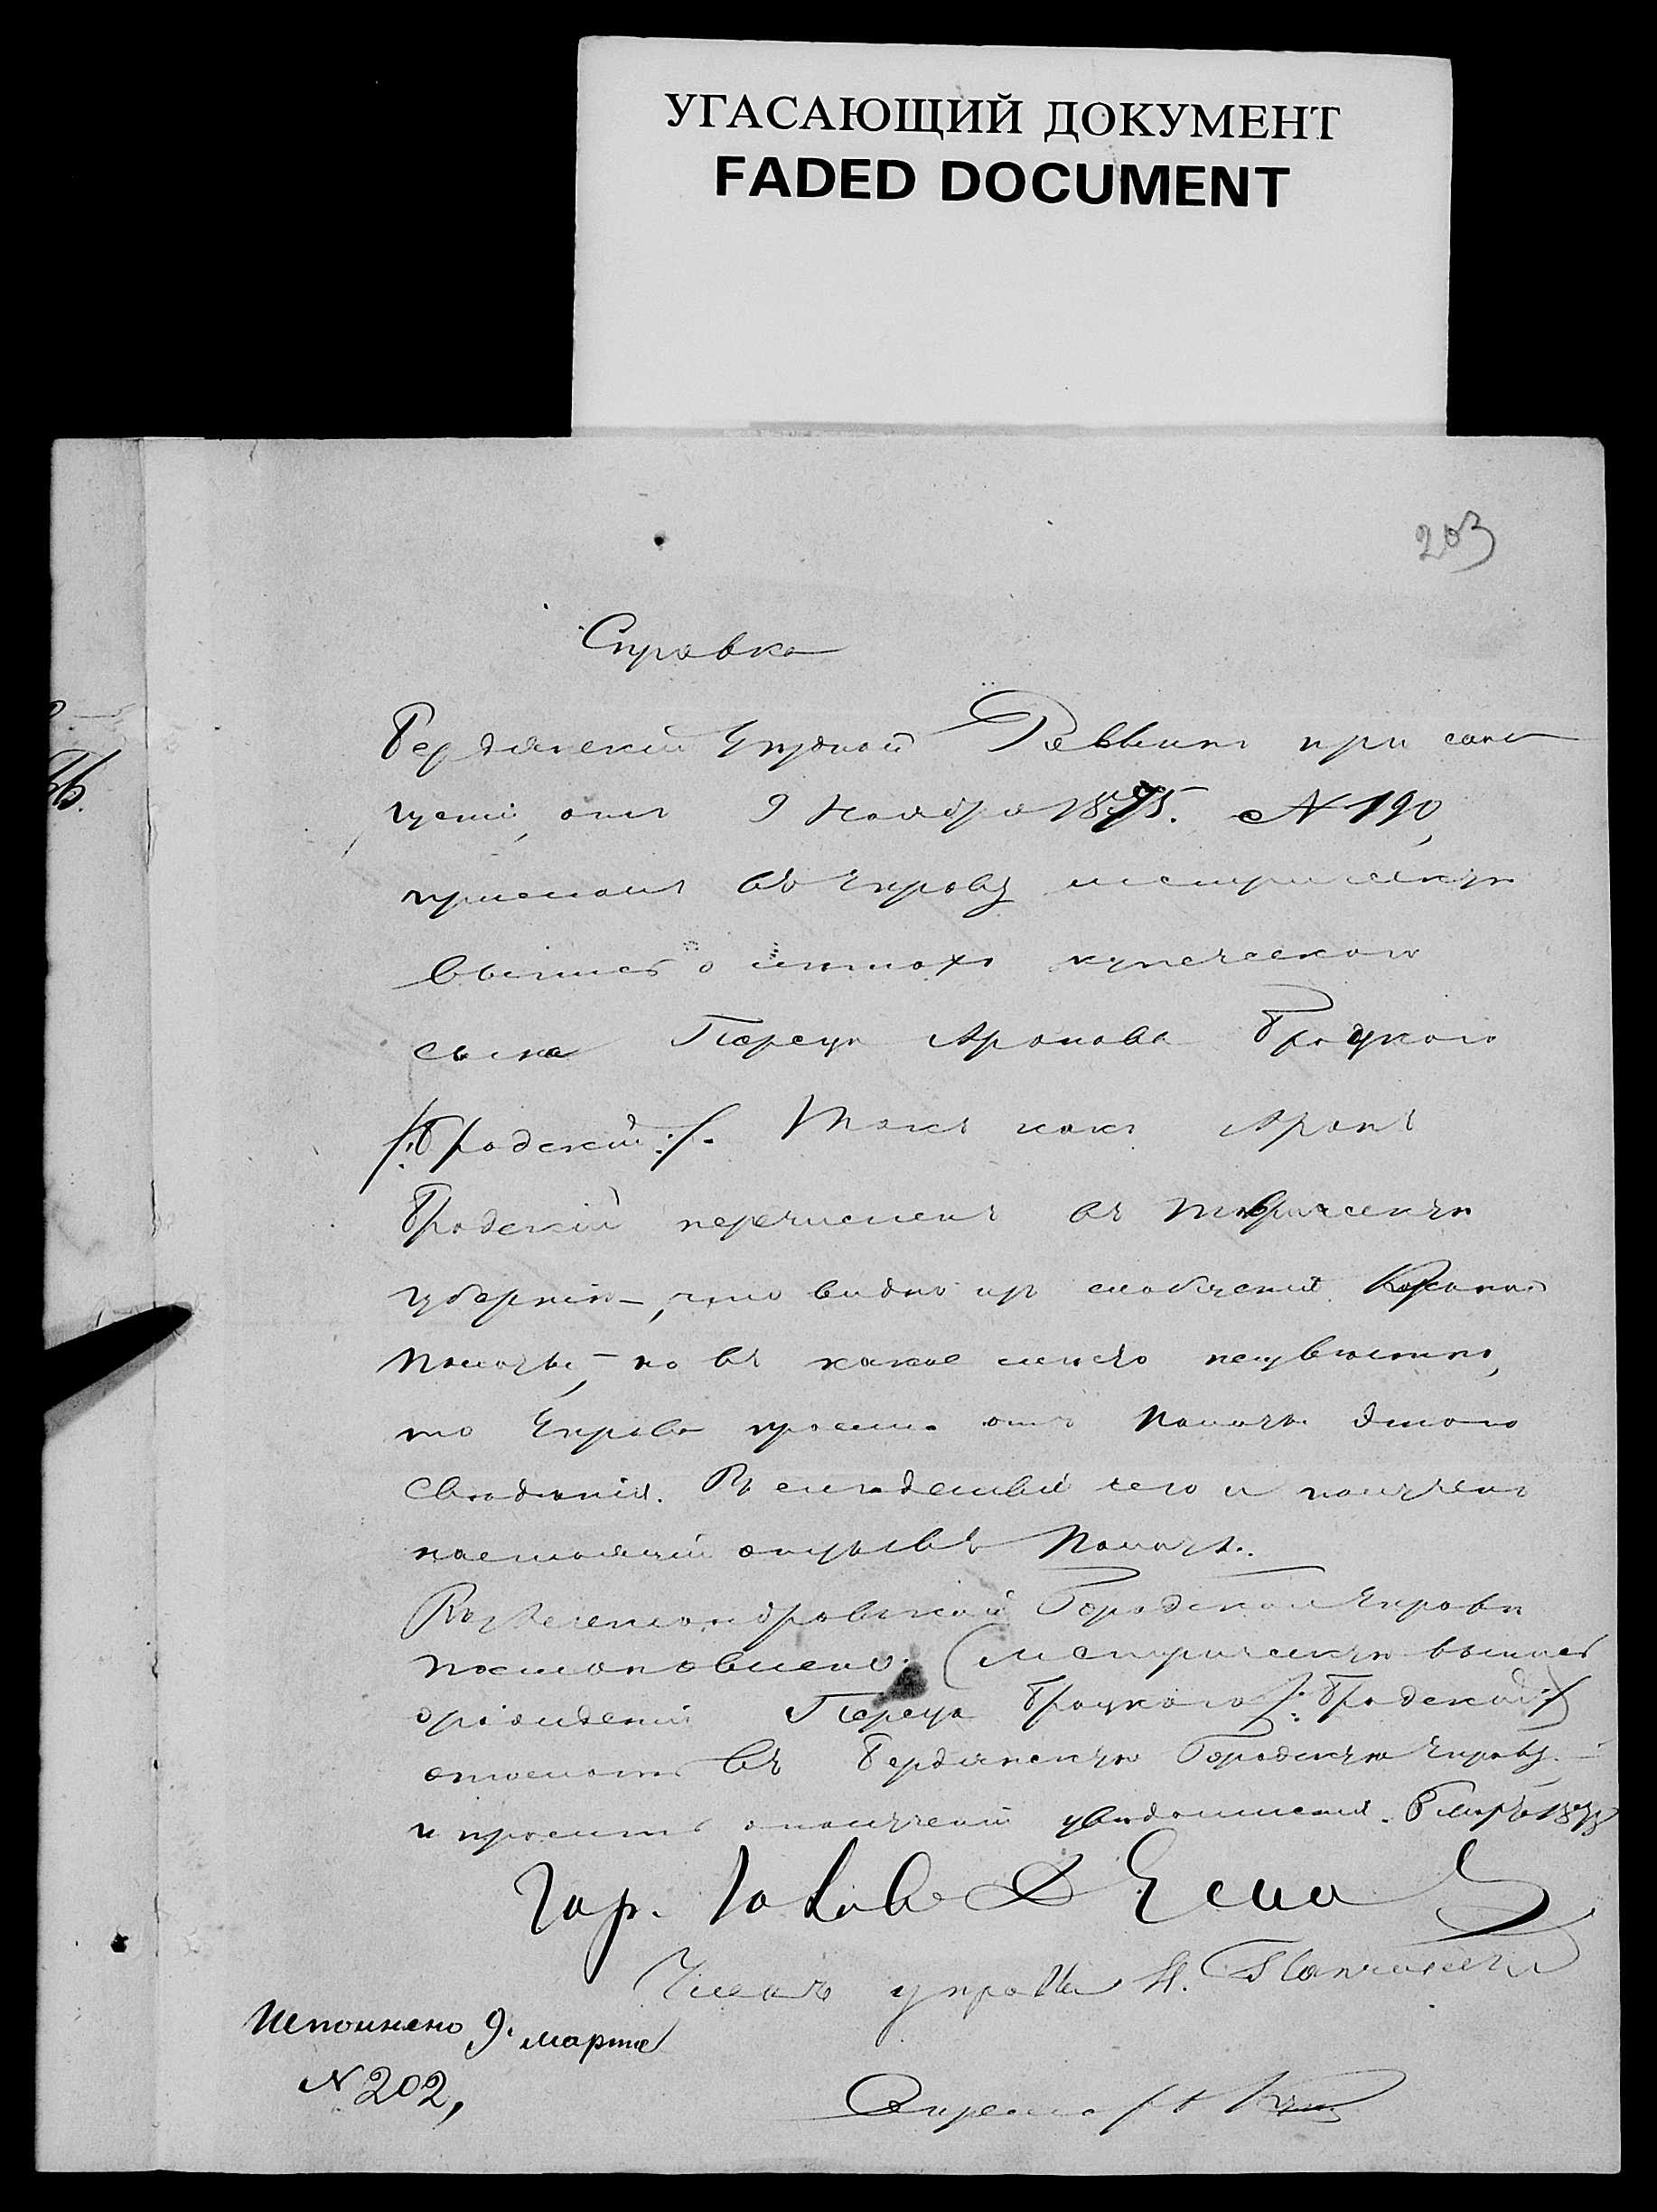 УГАСАЮЩИЙ ДОКУМЕНТ
FADED DOCUMENT
203
Справка
Бердянскій Уѣздной Раввинъ при сооб
щеніи, отъ 9 Ноября 1875. № 190,
прислалъ въ Управу метрическую
выпись о сынѣ купеческого
сына Переца Аронова Броцкого
/:Бродскій:/. Такъ какъ Аронъ
Бродскій перечисленъ въ Таврическую
губернію, что видно изъ сообщенія Казенной
Палаты, но въ какое мѣсто неизвѣстно,
то Управа просила отъ Палаты этого
Свѣденія. Въ слѣдствіи чего и полученъ
настоящій отзывъ Палаты.
Въ Александровской Городской Управѣ
постановлено: метрическую выпись
о рожденіи Переца Броцкого /:Бродской:/
отослать въ Бердянскую Городскую Управу
и просить о полученіи увѣдомленія. 8 Мар
Гор. Голова
Членъ управы
Исполнено 9. марта
№ 202,